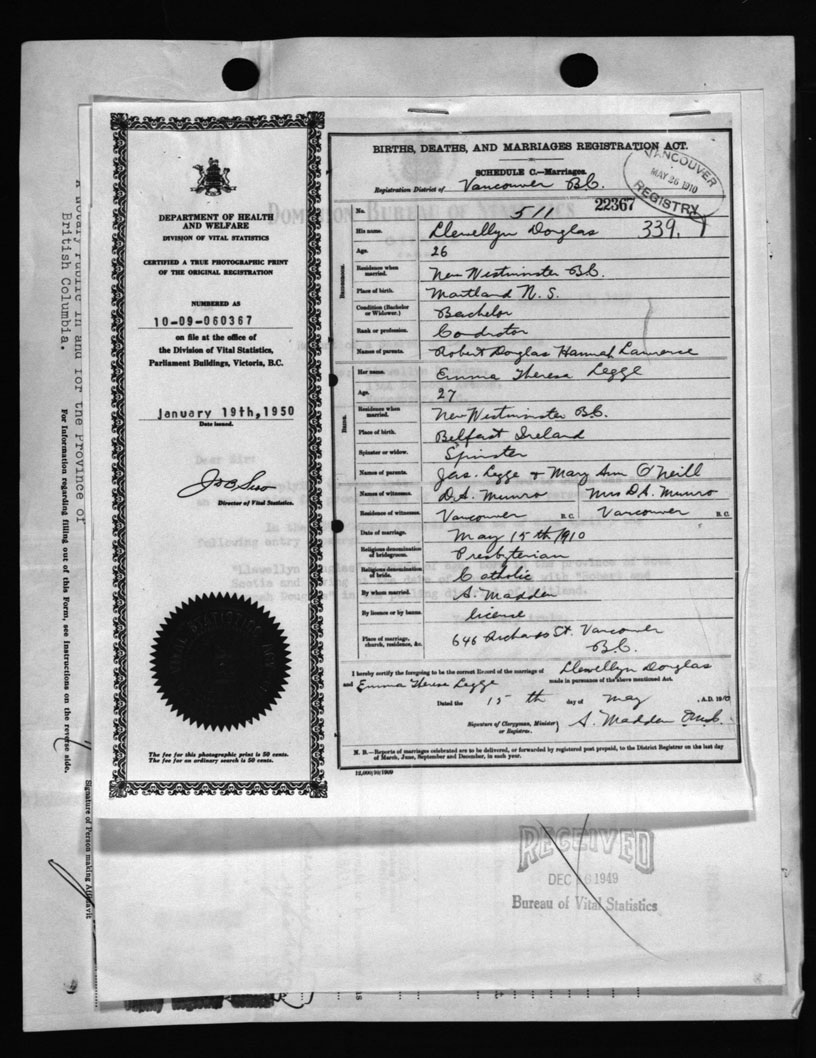 DEPARTMENT OF HEALTH
AND WELFARE
DIVISION OF VITAL STATISTICS
CERTIFIED A TRUE PHOTOGRAPHIC PRINT
OF THE ORIGINAL REGISTRATION
NUMBERED AS
10-09-060367
on file at the office of
the Division of Vital Statistics,
Parliament Buildings, Victoria, B.C.
January 19th, 1950
Date issued.
Director of Vital Statistics.
The fee for this photographic print is 50 cents.
The fee for an ordinary search is 50 cents.
BIRTHS, DEATHS, AND MARRIAGES REGISTRATION ACT.
SCHEDULE C.—Marriages.
Registration District of Vancouver B.C.
VANCOUVER
MAY 26 1910
REGISTRY
No. 511 22367
His name. Llewellyn Douglas 339.
Age. 26
Residence when married. New Westminster B.C.
Place of birth. Maitland N. S.
Condition (Bachelor or Widower.) Bachelor
Rank or profession. Conductor
Names of parents. Robert Douglas Hannah Lawrence
Bridegroom.
Her name. Emma Theresa Legge
Age. 27
Residence when married. New Westminster B.C.
Place of birth. Belfast Ireland
Spinster or widow. Spinster
Names of parents. Jas. Legge & Mary Ann O'Neill
Bride.
Names of witnesses. D.A. Munro Mrs D.A. Munro
Residence of witnesses. Vancouver B.C. Vancouver B.C.
Date of marriage. May 15th 1910
Religious denomination of bridegroom. Presbyterian
Religious denomination of bride. Catholic
By whom married. A. Madden
By licence or by banns. license
Place of marriage, church, residence, &c. 646 Richards St. Vancouver
B.C.
I hereby certify the foregoing to be the correct Record of the marriage of Llewellyn Douglas
and Emma Therese Legge made in pursuance of the above mentioned Act.
Dated the 15th day of May, A.D. 1910
Signature of Clergyman, Minister, or Registrar. A. Madden O.M.I.
N. B.—Reports of marriages celebrated are to be delivered, or forwarded by registered post prepaid, to the District Registrar on the last day
of March, June, September and December, in each year.
12,000/10/1909
RECEIVED
DEC 16 1949
Bureau of Vital Statistics
a Notary Public in and for the Province of
British Columbia.
For Information regarding filling out of this Form, see Instructions on the reverse side.
Signature of Person making Affidavit